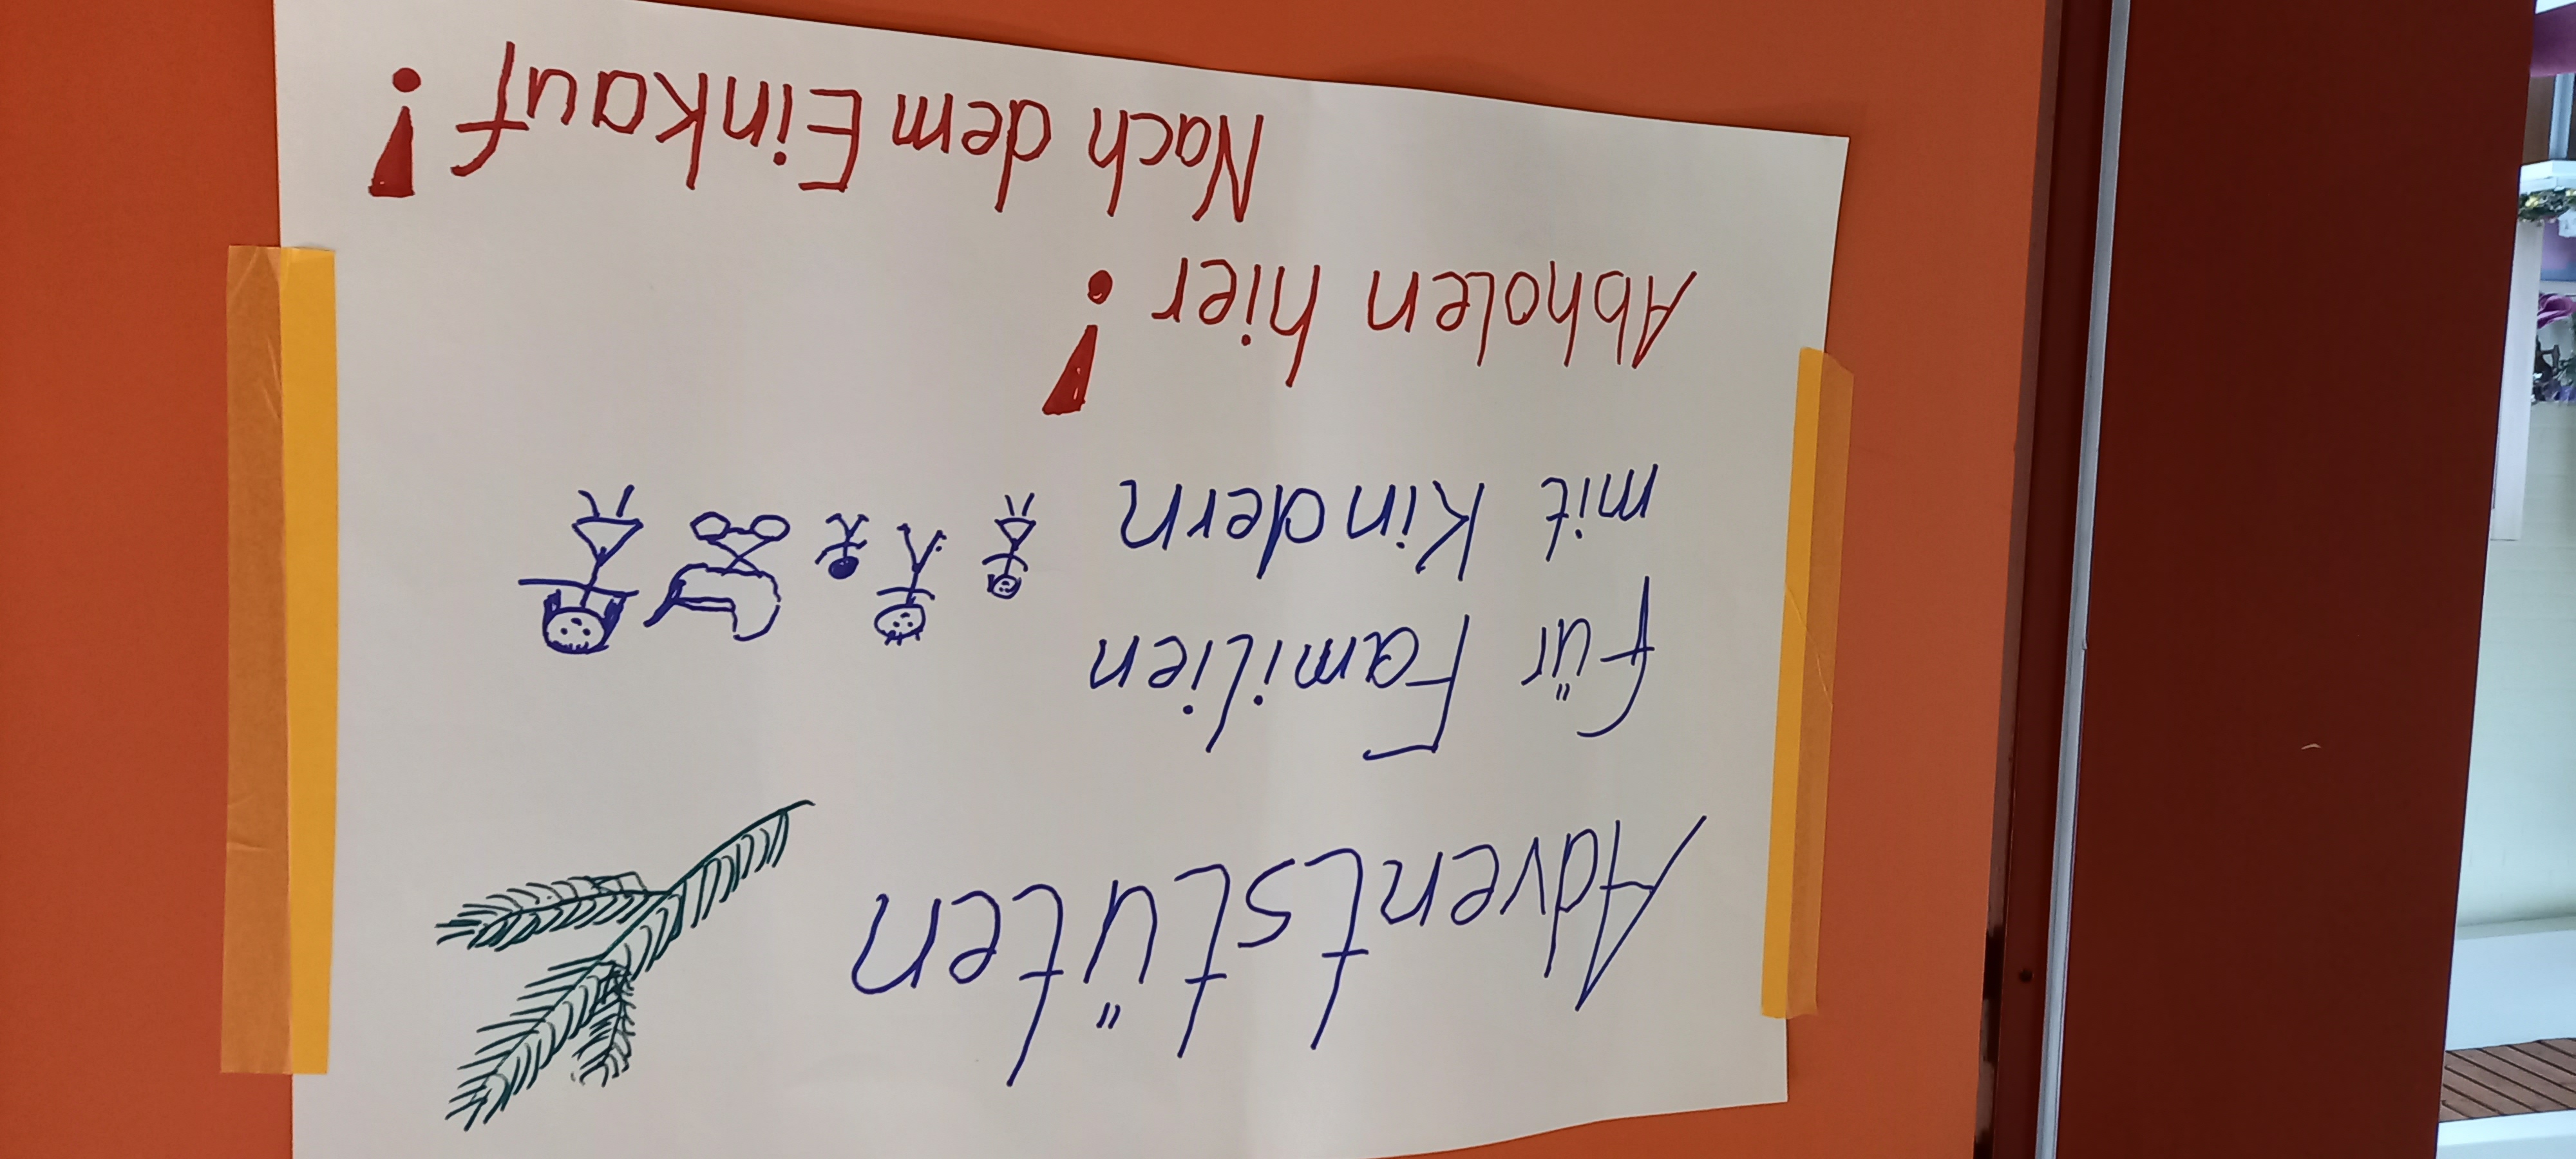 Adventstüten
für Familien
mit Kindern
Abholen hier!
Nach dem Einkauf!